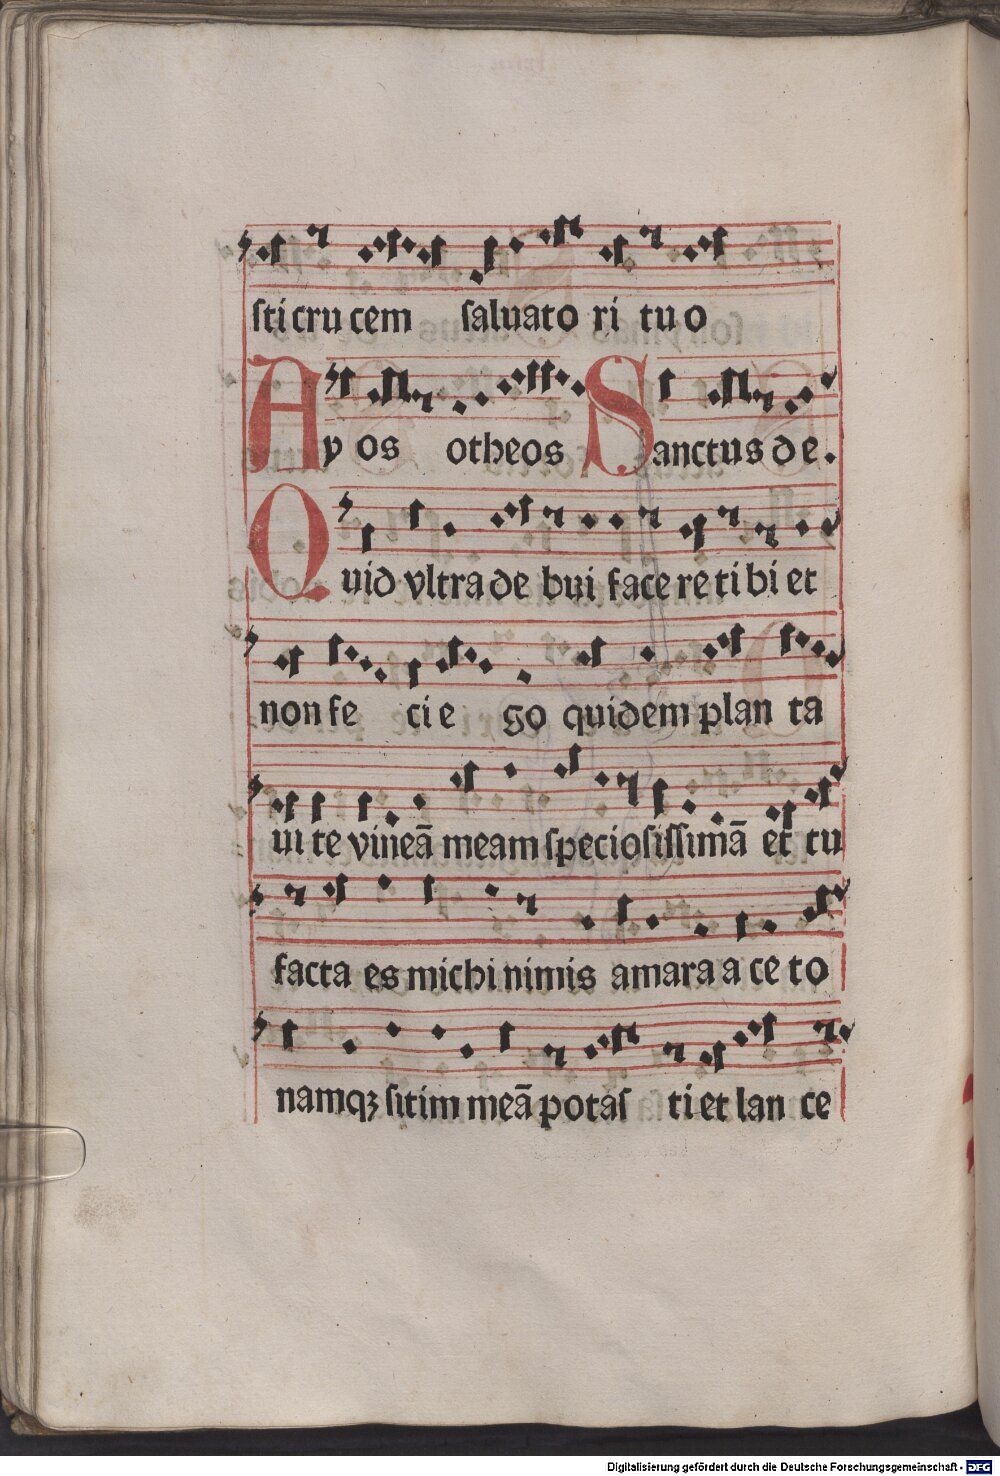 sti cru cem saluato ri tu o
Ay os otheos Sanctus de.
Quid vltra de bui face re ti bi et
non fe ci e go quidem plan ta
ui te vineã meam speciosissimã et tu
facta es michi nimis amara a ce to
namqȝ sitim meã potas ti et lan ce
Digitalisierung gefördert durch die Deutsche Forschungsgemeinschaft - DFG